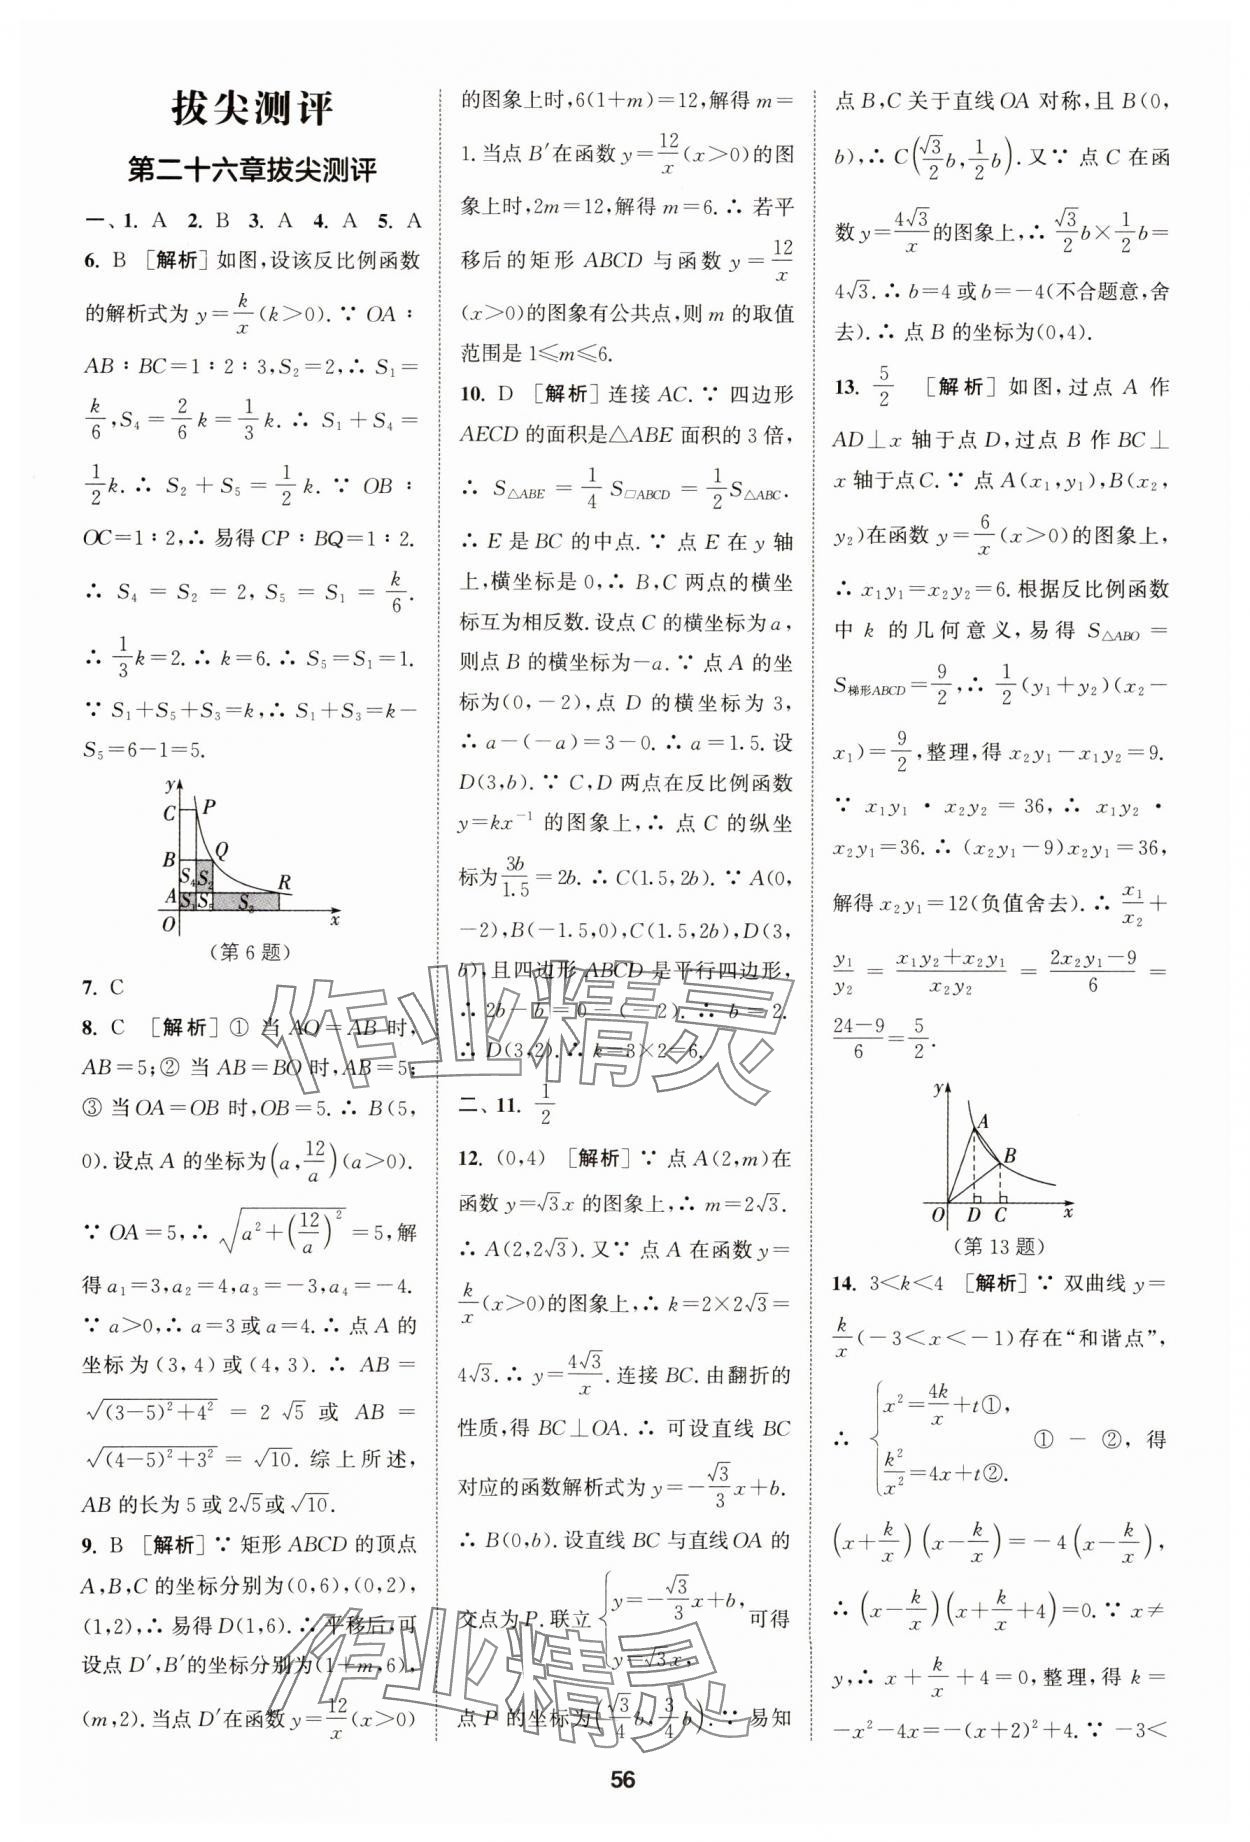 拔尖测评
第二十六章拔尖测评
一、1. A 2. B 3. A 4. A 5. A
6. B [解析]如图,设该反比例函数
的解析式为 y=k/x(k>0).∵ OA∶
AB∶BC=1∶2∶3,S₂=2,∴ S₁=
k/6,S₄=2/6k=1/3k.∴ S₁+S₄=
1/2k.∴ S₂+S₅=1/2k.∵ OB∶
OC=1∶2,∴ 易得CP∶BQ=1∶2.
∴ S₄=S₂=2,S₅=S₁=k/6.
∴ 1/3k=2.∴ k=6.∴ S₅=S₁=1.
∵ S₁+S₅+S₃=k,∴ S₁+S₃=k-
S₅=6-1=5.
y
C P
B Q
S₄ S₂
A R
S₁ S₅ S₃
O x
(第6题)
7. C
8. C [解析]① 当 AO=AB 时,
AB=5;② 当 AB=BO 时,AB=5;
③ 当OA=OB时,OB=5.∴ B(5,
0).设点 A 的坐标为(a,12/a)(a>0).
∵ OA=5,∴ √(a²+(12/a)²)=5,解
得a₁=3,a₂=4,a₃=-3,a₄=-4.
∵ a>0,∴ a=3或a=4.∴ 点A的
坐标为(3,4)或(4,3).∴ AB=
√((3-5)²+4²)=2√5 或 AB=
√((4-5)²+3²)=√10.综上所述,
AB的长为5或2√5或√10.
9. B [解析]∵ 矩形 ABCD 的顶点
A,B,C的坐标分别为(0,6),(0,2),
(1,2),∴ 易得D(1,6).∴ 平移后,可
设点 D′,B′的坐标分别为(1+m,6),
(m,2).当点D′在函数y=12/x(x>0)
的图象上时,6(1+m)=12,解得 m=
1.当点 B′在函数 y=12/x(x>0)的图
象上时,2m=12,解得 m=6.∴ 若平
移后的矩形 ABCD 与函数 y=12/x
(x>0)的图象有公共点,则m的取值
范围是1≤m≤6.
10. D [解析]连接AC.∵ 四边形
AECD的面积是△ABE面积的3倍,
∴ S△ABE=1/4 S▱ABCD=1/2S△ABC.
∴ E是BC的中点.∵ 点E在y轴
上,横坐标是0,∴ B,C两点的横坐
标互为相反数.设点C的横坐标为a,
则点B的横坐标为-a.∵ 点A的坐
标为(0,-2),点 D 的横坐标为 3,
∴ a-(-a)=3-0.∴ a=1.5.设
D(3,b).∵ C,D两点在反比例函数
y=kx⁻¹ 的图象上,∴ 点 C 的纵坐
标为3b/1.5=2b.∴ C(1.5,2b).∵ A(0,
-2),B(-1.5,0),C(1.5,2b),D(3,
b),且四边形ABCD是平行四边形,
∴ 2b-b=0-(-2).∴ b=2.
∴ D(3,2).∴ k=3×2=6.
二、11. 1/2
12. (0,4) [解析]∵ 点A(2,m)在
函数 y=√3x 的图象上,∴ m=2√3.
∴ A(2,2√3).又∵ 点A在函数y=
k/x(x>0)的图象上,∴ k=2×2√3=
4√3.∴ y=4√3/x.连接BC.由翻折的
性质,得BC⊥OA.∴ 可设直线BC
对应的函数解析式为y=-√3/3x+b.
∴ B(0,b).设直线BC与直线OA的
交点为P.联立{y=-√3/3x+b, y=√3x,可得
点 P 的坐标为(√3/4b,3/4b).∵ 易知
点 B,C 关于直线 OA 对称,且 B(0,
b),∴ C(√3/2b,1/2b).又∵ 点C在函
数y=4√3/x的图象上,∴ √3/2b×1/2b=
4√3.∴ b=4或b=-4(不合题意,舍
去).∴ 点B的坐标为(0,4).
13. 5/2 [解析]如图,过点 A 作
AD⊥x 轴于点 D,过点 B 作 BC⊥
x轴于点C.∵ 点A(x₁,y₁),B(x₂,
y₂)在函数y=6/x(x>0)的图象上,
∴ x₁y₁=x₂y₂=6.根据反比例函数
中 k 的几何意义,易得 S△ABO=
S梯形ABCD=9/2,∴ 1/2(y₁+y₂)(x₂-
x₁)=9/2,整理,得 x₂y₁-x₁y₂=9.
∵ x₁y₁·x₂y₂=36,∴ x₁y₂·
x₂y₁=36.∴ (x₂y₁-9)x₂y₁=36,
解得x₂y₁=12(负值舍去).∴ x₁/x₂+
y₁/y₂=(x₁y₂+x₂y₁)/(x₂y₂)=(2x₂y₁-9)/6=
(24-9)/6=5/2.
y
A
B
O D C x
(第13题)
14. 3<k<4 [解析]∵ 双曲线 y=
k/x(-3<x<-1)存在“和谐点”,
∴ {x²=4k/x+t①, k²/x²=4x+t②. ①-②,得
(x+k/x)(x-k/x)=-4(x-k/x),
∴ (x-k/x)(x+k/x+4)=0.∵ x≠
y,∴ x+k/x+4=0,整理,得 k=
-x²-4x=-(x+2)²+4.∵ -3<
56
作业精灵
作业精灵